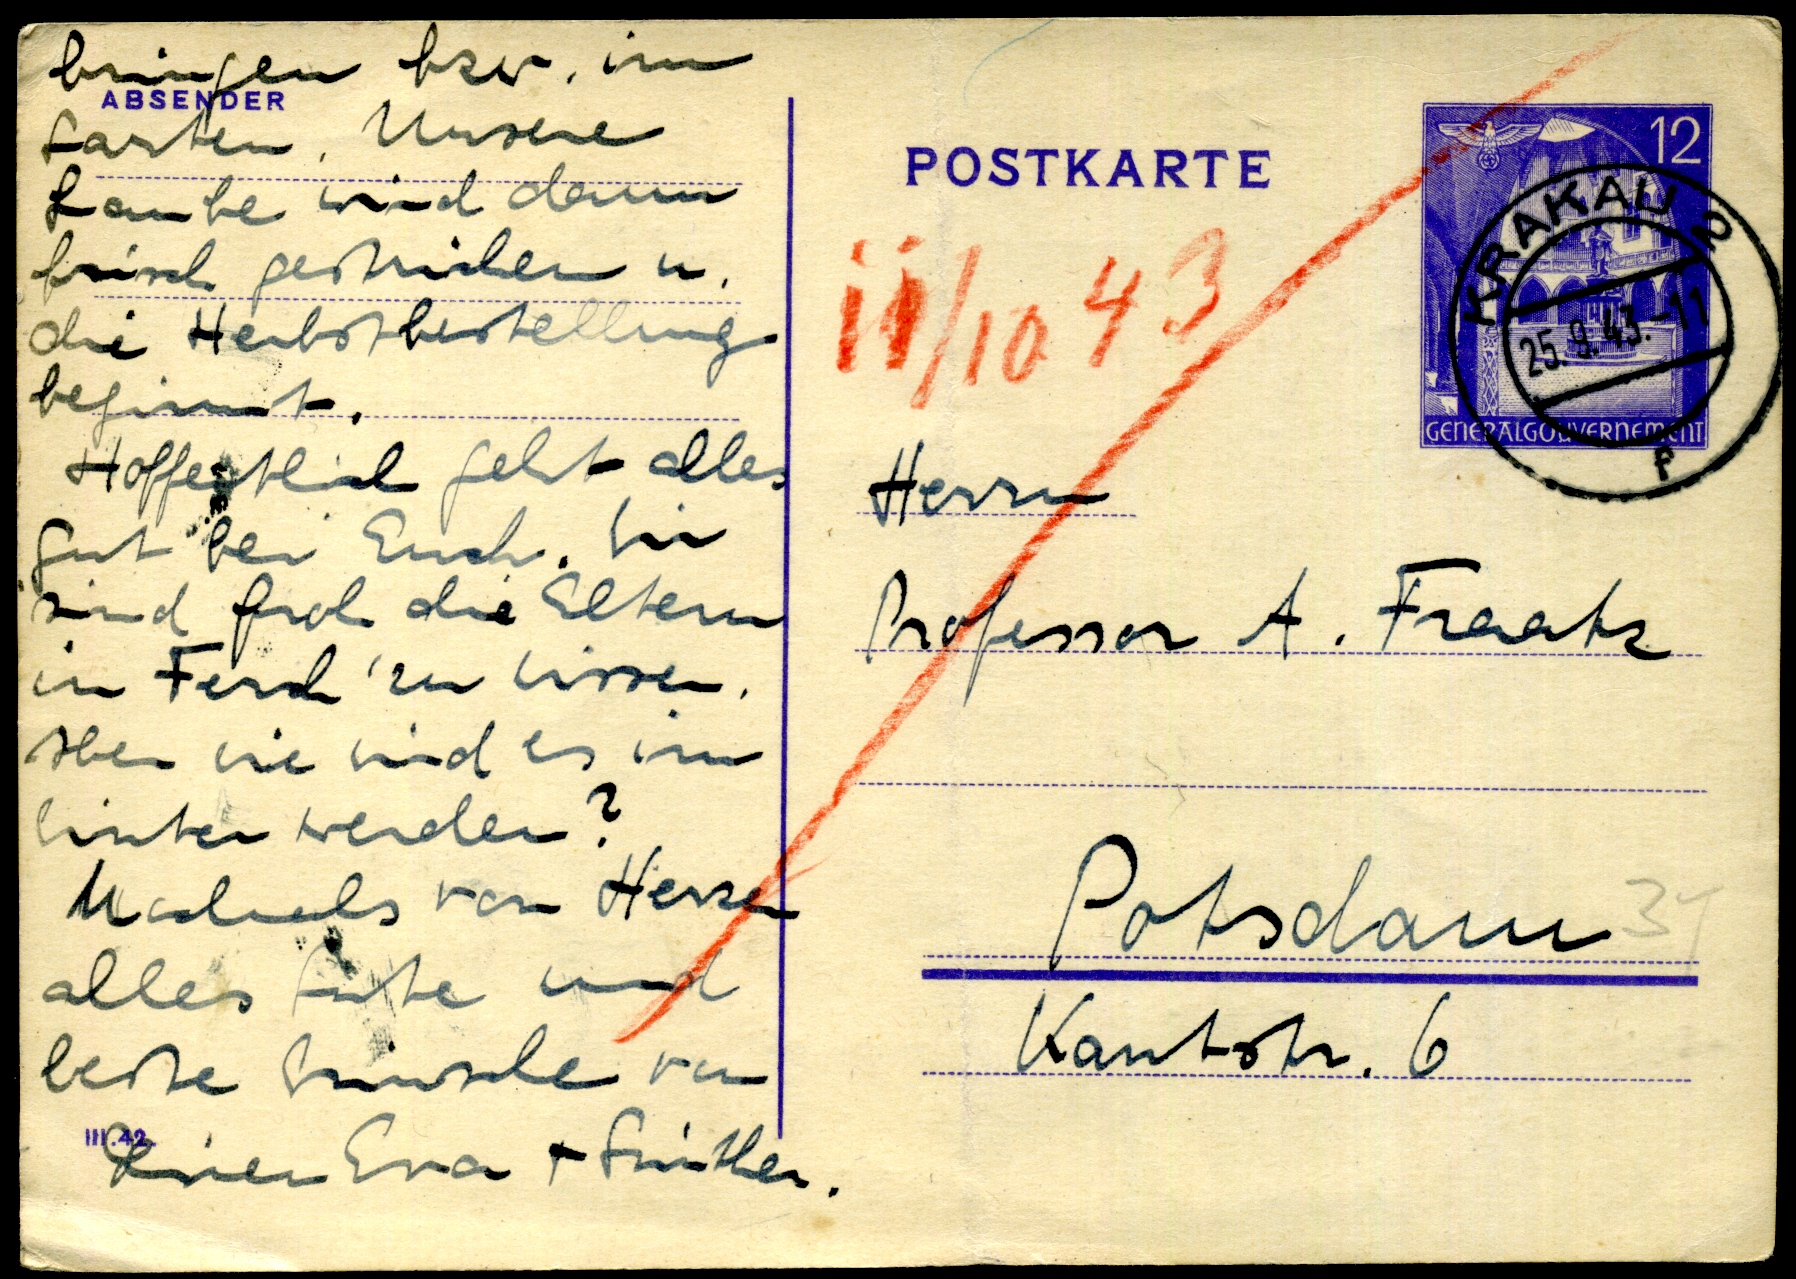 bringen bzw. im
ABSENDER
Garten. Unsere
Laube wird dann
frisch gestrichen u.
die Herbstbestellung
beginnt.
Hoffentlich geht alles
gut bei Euch. Wir
sind froh die Eltern
in Ferch zu wissen.
Aber wie wird es im
Winter werden?
Nochmals von Herzen
alles Gute und
beste Wünsche von
Deinen Eva + Günther.
III.42.
POSTKARTE
11/10 43
12
KRAKAU 2
25.9.43.-11
GENERALGOUVERNEMENT
Herrn
Professor A. Fraatz
Potsdam
Kantstr. 6